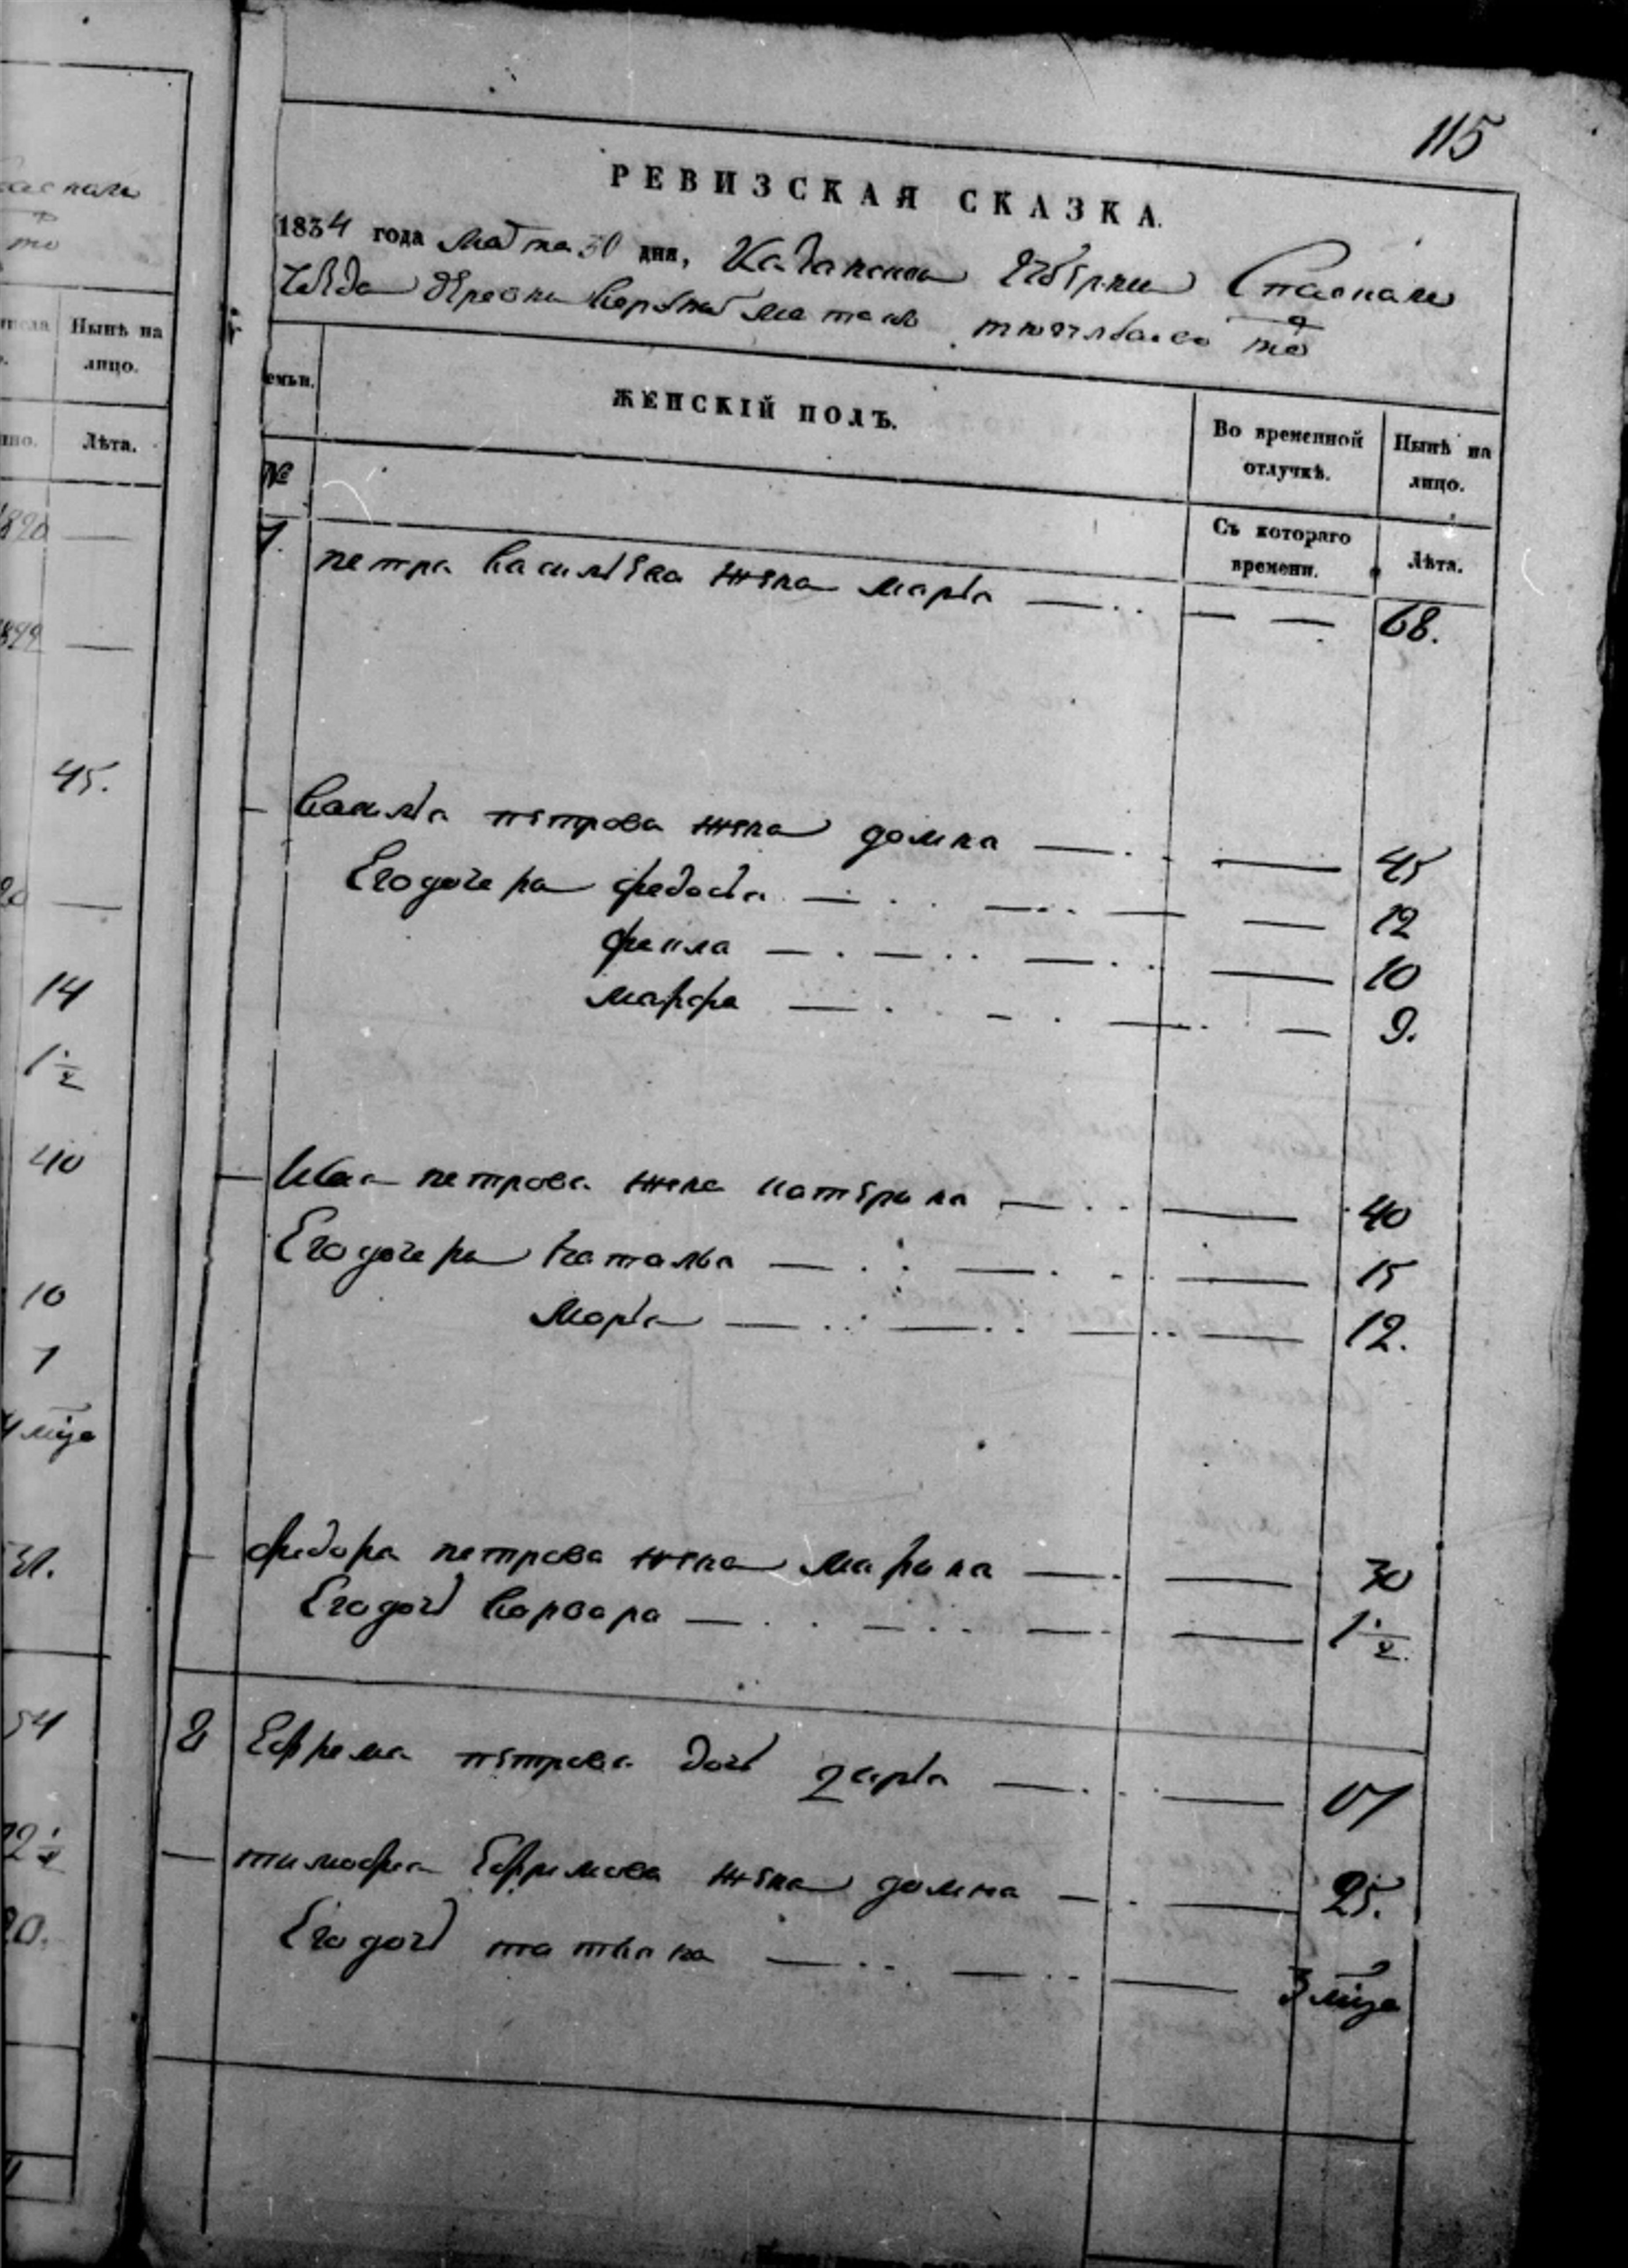 115
РЕВИЗСКАЯ СКАЗКА.
1834 года мая 30 дня, Казанской Губернии Спаского
уезда деревни
емьи.
ЖЕНСКІЙ ПОЛЪ.
Во временной отлучкѣ.
Нынѣ на лицо.
№
Съ котораго времени.
Лѣта.
7. петра васильева жена марья — 68.
— василья петрова жена домна — 45
Его дочери федосья — 12
фекла — 10
марфа — 9.
— Ивана петрова жена катерина — 40
Его дочери наталья — 15
марья — 12.
— федора петрова жена марина — 30
Его дочь варвара — 1 1/2.
8 Ефрема петрова дочь дарья — 17
— тимофея Ефримова жена домна — 25.
Его дочь татьяна — 3 мца
Нынѣ на лицо.
Лѣта.
1820 —
45.
14
1 1/2
40
10
7
4 мца
31.
54
22 1/2
20.